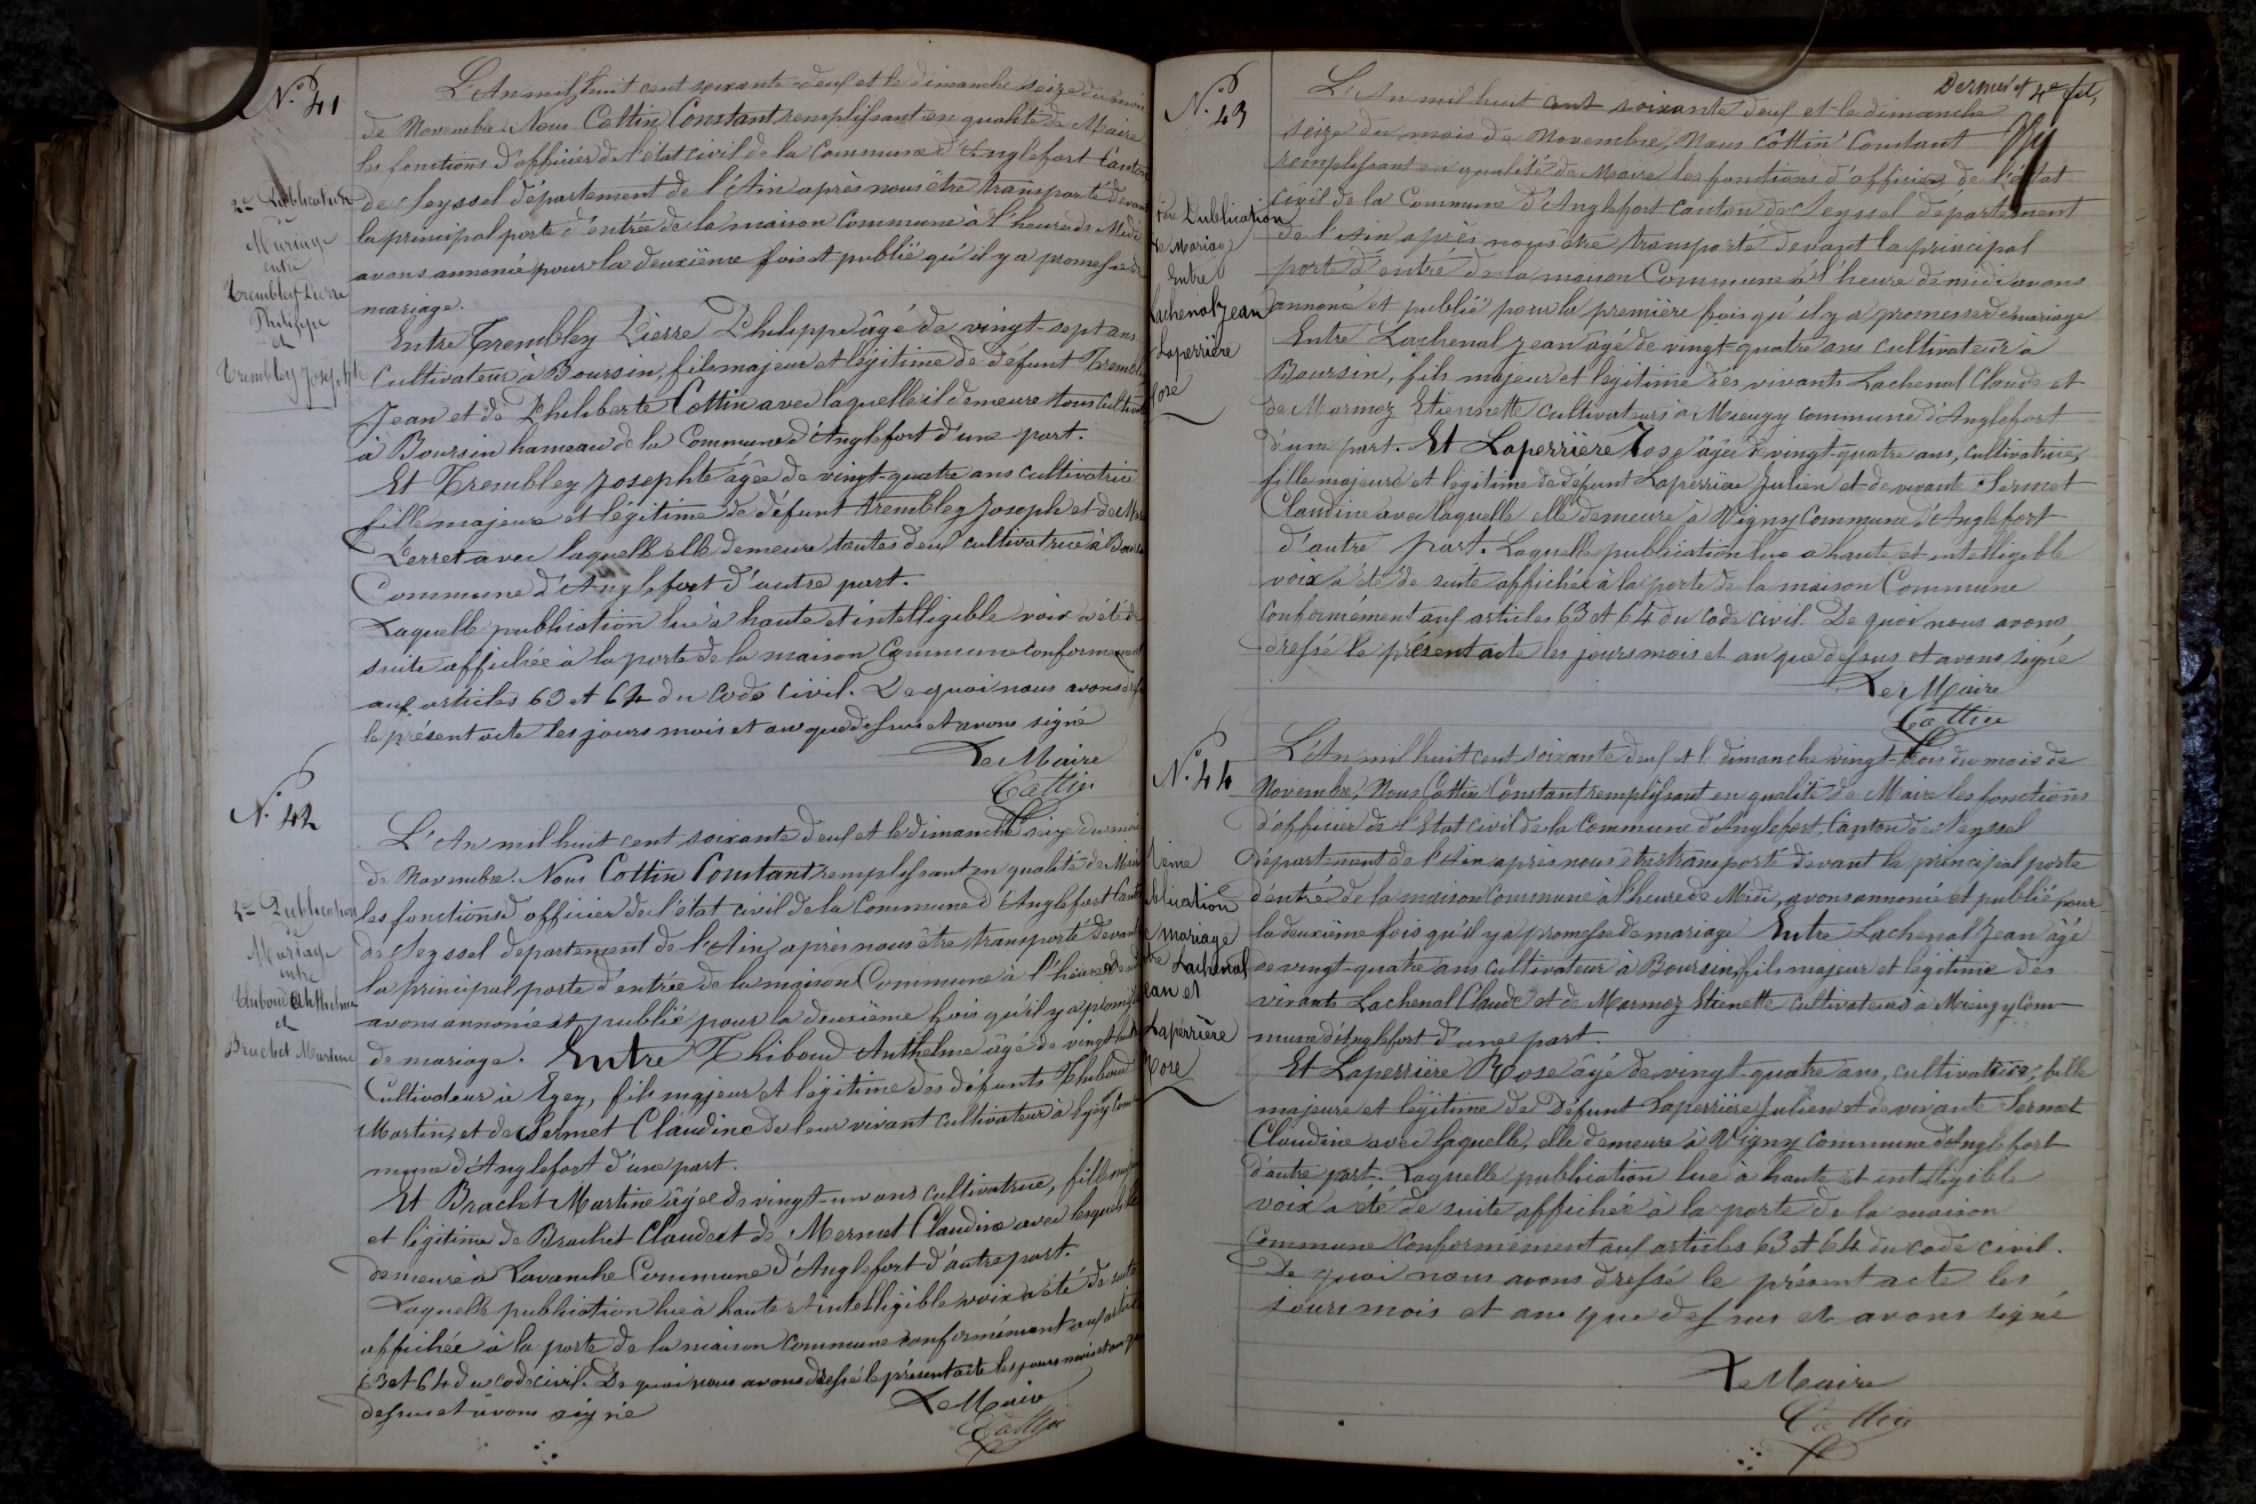 N° 41
L'An mil huit cent soixante-deux et le dimanche seize du mois
de Novembre. Nous Cottin Constant remplissant en qualité de Maire
les fonctions d'officier de l'état civil de la Commune d'Anglefort Canton
de Seyssel département de l'Ain après nous être transporté devant
la principal porte d'entrée de la maison Commune à l'heure de Midi
avons annoncé pour la deuxième fois et publié qu'il y a promesse de
mariage.
2me Publication
de
Mariage
entre
Trembley Pierre
Philippe
et
Trembley Josephte
Entre Trembley Pierre Philippe âgé de vingt-sept ans
Cultivateur à Boursin, fils majeur et légitime de défunt Trembley
Jean et de Philiberte Cottin avec laquelle il demeure tous cultivat
à Boursin hameau de la Commune d'Anglefort d'une part.
Et Trembley Josephte âgée de vingt-quatre ans cultivatrice
fille majeure et légitime de défunt Trembley Joseph et de
Perret avec laquelle elle demeure toutes deux cultivatrice à Boursin
Commune d'Anglefort d'autre part.
Laquelle publication lue à haute et intelligible voix a été de
suite affichée à la porte de la maison Commune conformément
aux articles 63 et 64 du code civil. De quoi nous avons
le présent acte les jours mois et an que dessus et avons signé
Le Maire
Cottin
N° 42
L'An mil huit cent soixante deux et le dimanche seize du mois
de Novembre. Nous Cottin Constant remplissant en qualité de Maire
les fonctions d'officier de l'état civil de la Commune d'Anglefort Canton
de Seyssel département de l'Ain, après nous être transporté devant
la principal porte d'entrée de la maison Commune à l'heure de midi
avons annoncé et publié pour la deuxième fois qu'il y a promesse
de mariage. Entre Thiboud Anthelme âgé de vingt-huit
Cultivateur à Egey, fils majeur et légitime des défunts Thiboud
Martin, et de Sermet Claudine de leur vivant cultivateur à Egey Com
mune d'Anglefort d'une part.
2me Publication
de
Mariage
entre
Thiboud Anthelme
et
Brachet Martine
Et Brachet Martine âgée de vingt-un ans cultivatrice, fille majeure
et légitime de Brachet Claude et de Mermet Claudine avec lesquels elle
demeure à Lavanche Commune d'Anglefort d'autre part.
Laquelle publication lue à haute et intelligible voix a été de suite
affichée à la porte de la maison Commune conformément aux articles
63 et 64 du code civil. De quoi nous avons dressé le présent acte les jours mois et an que
dessus et avons signé
Le Maire
Cottin
Dernier et 4e fet,
N° 43
L'An mil huit cent soixante deux et le dimanche
seize du mois de Novembre, Nous Cottin Constant
remplissant en qualité de Maire les fonctions d'officier de l'état
civil de la Commune d'Anglefort canton de Seyssel département
de l'Ain après nous être transporté devant la principal
porte d'entré de la maison Commune à l'heure de midi avons
annoncé et publié pour la première fois qu'il y a promesse de mariage
1ère Publication
de Mariage
Entre
Lachenal Jean
Laperrière
Rose
Entre Lachenal Jean âgé de vingt-quatre ans cultivateur à
Boursin, fils majeur et légitime des vivants Lachenal Claude et
de Marmoz Etiennette cultivateurs à Mieugy commune d'Anglefort
d'une part. Et Laperrière Rose âgée de vingt-quatre ans, cultivatrice,
fille majeure et légitime de défunt Laperrière Julien et de vivante Sermet
Claudine avec laquelle elle demeure à Vigny Commune d'Anglefort
d'autre part. Laquelle publication lue a haute et intelligible
voix a été de suite affichée à la porte de la maison Commune
Conformément aux articles 63 et 64 du code civil. De quoi nous avons
dressé le présent acte les jours mois et an que dessus et avons signé
Le Maire
Cottin
N° 44
L'An mil huit cent soixante deux et l dimanche vingt-trois du mois de
Novembre, Nous Cottin Constant remplissant en qualité de Maire les fonctions
d'officier de l'Etat civil de la Commune d'Anglefort, Canton de Seyssel
département de l'Ain après nous être transporté devant la principal porte
d'entré de la maison Commune à l'heure de Midi, avons annoncé et publié pour
la deuxième fois qu'il y a promesse de mariage Entre Lachenal Jean âgé
de vingt-quatre ans cultivateur à Boursin, fils majeur et légitime des
vivants Lachenal Claude et de Marmoz Etienette cultivateurs à Mieugy Com-
mune d'Anglefort d'une part.
2ème
ublication
mariage
Lachenal
Jean et
Laperrière
Rose
Et Laperrière Rose âgé de vingt-quatre ans, cultivatrice, fille
majeure et légitime de Défunt Laperrière Julien et de vivante Sermet
Claudine avec laquelle, elle demeure à Vigny Commune d'Anglefort
d'autre part. Laquelle publication lue à haute et intelligible
voix a été de suite affichée à la porte de la maison
Commune Conformément aux articles 63 et 64 du code civil.
De quoi nous avons dressé le présent acte les
jours mois et an que dessus et avons signé
Le Maire
Cottin